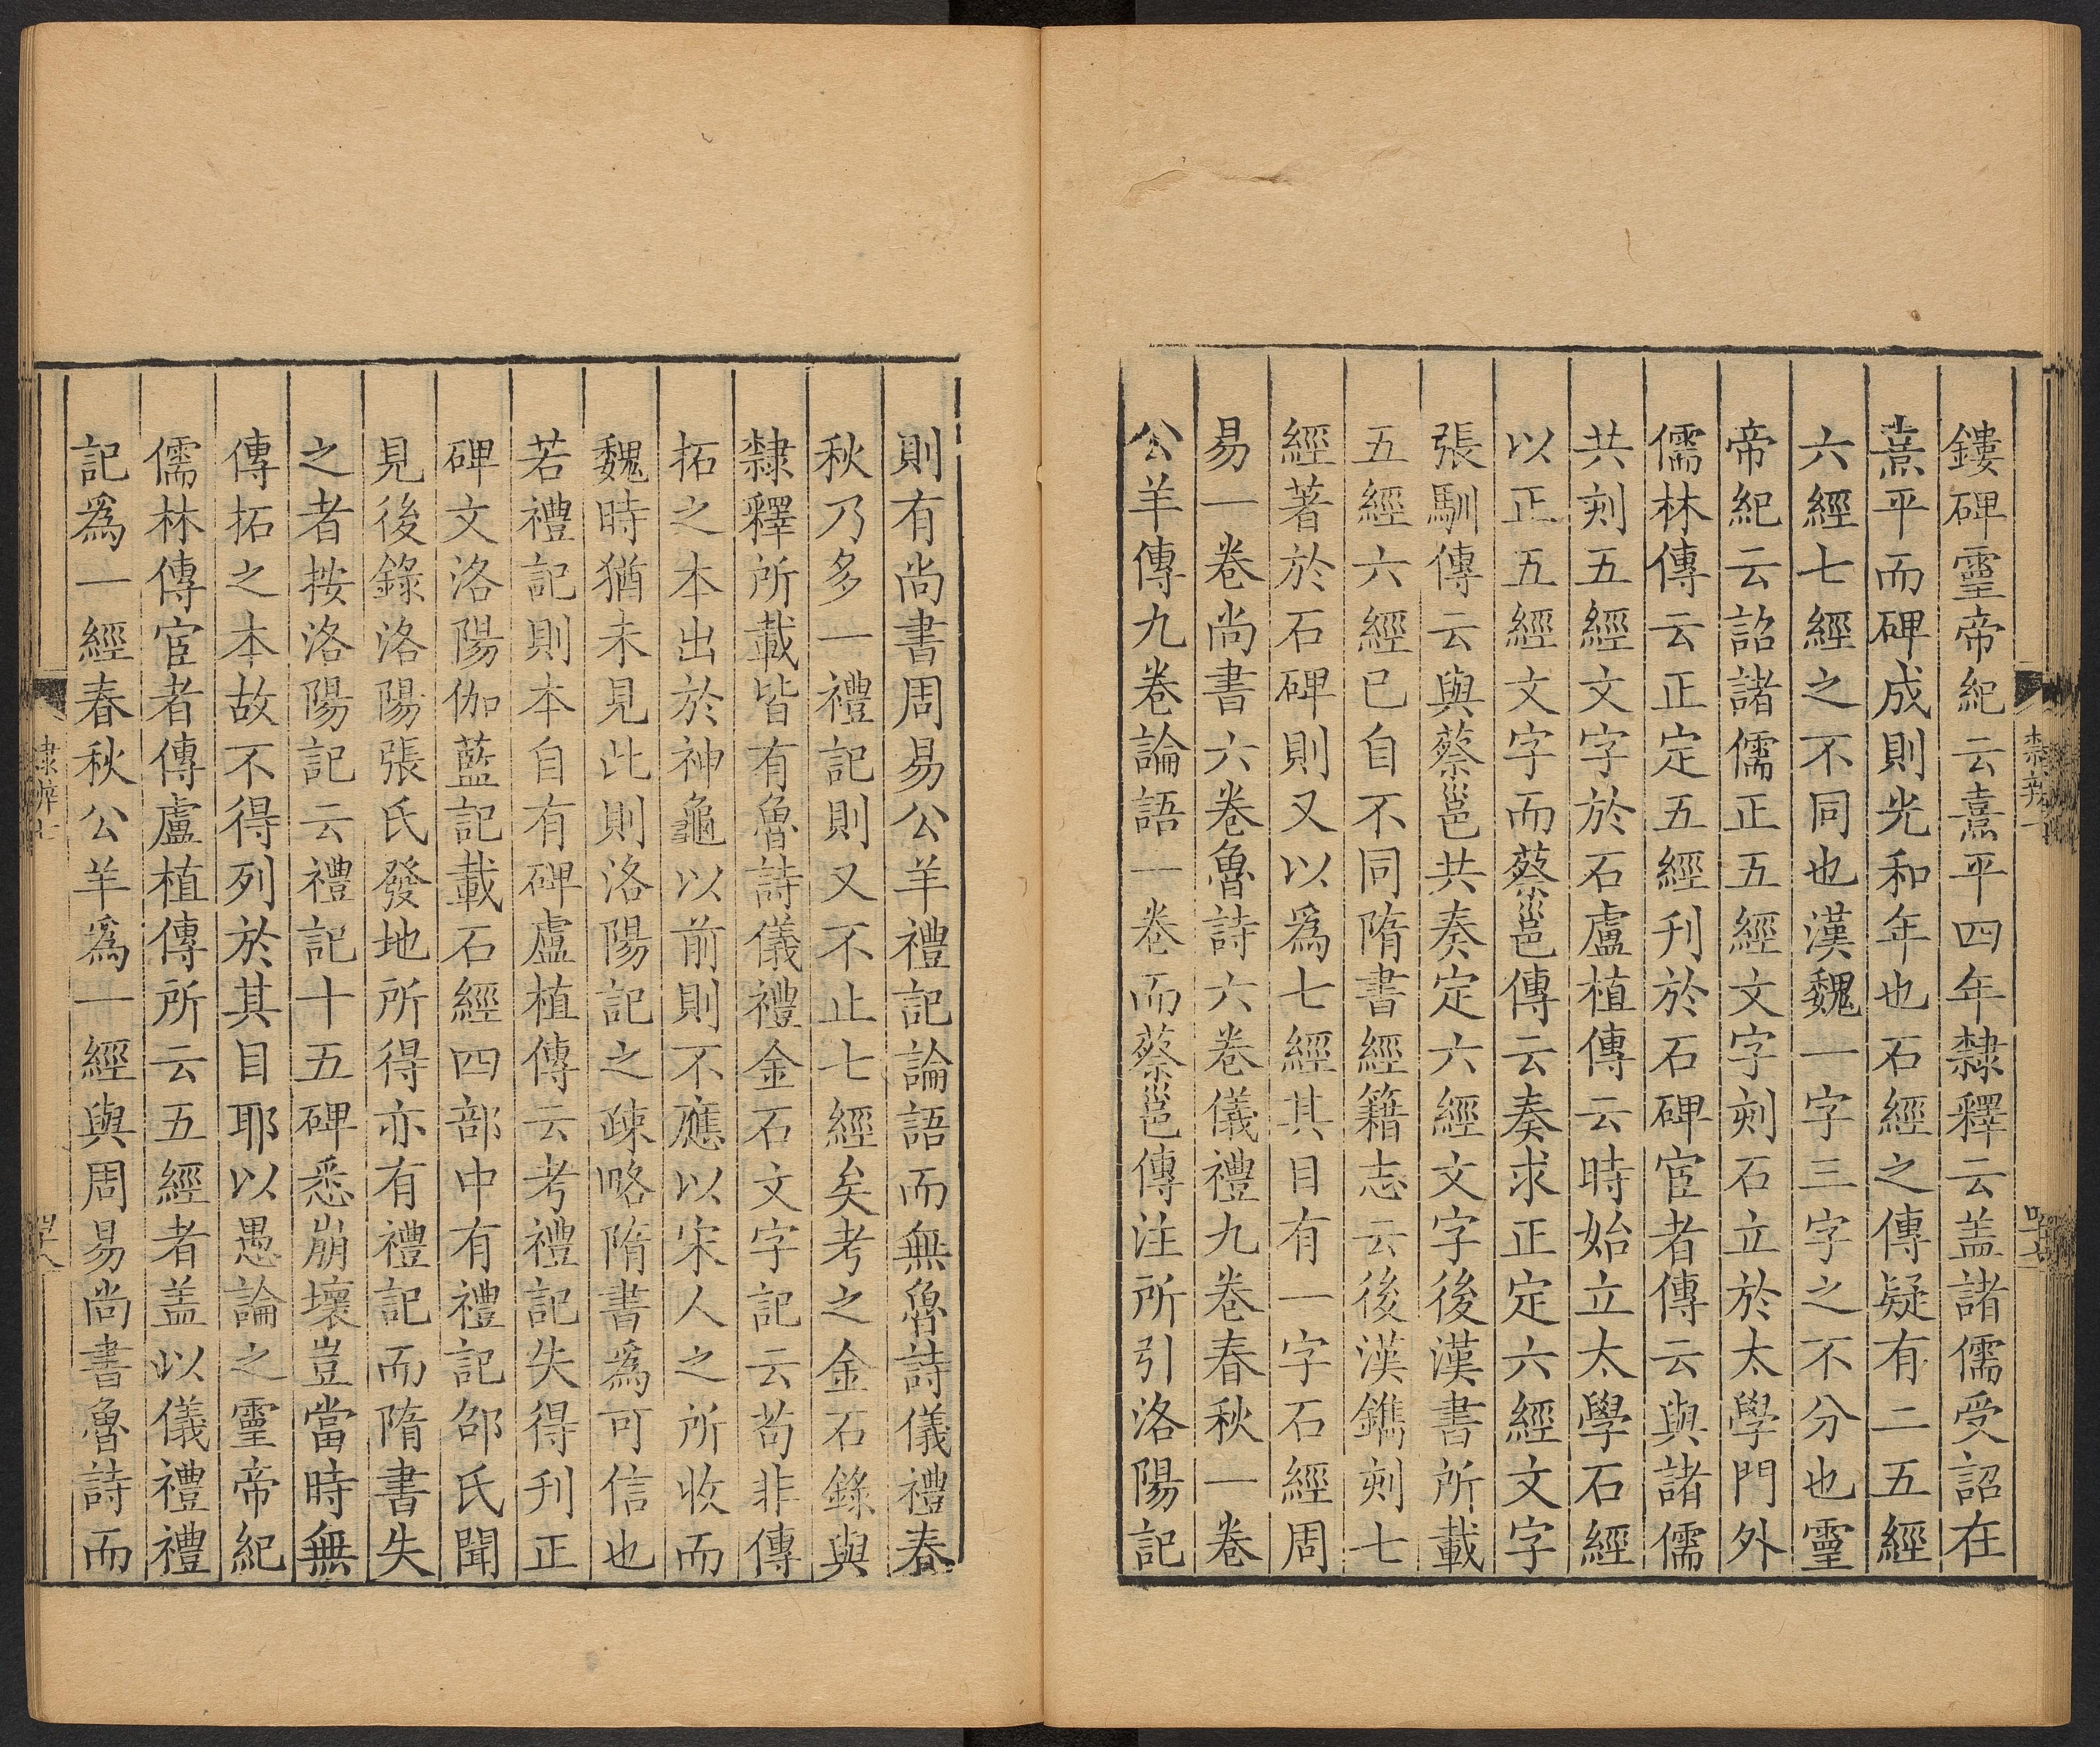 鏤碑靈帝紀云熹平四年隸釋云盖諸儒受詔在
熹平而碑成則光和年也石經之傳疑有二五經
六經七經之不同也漢魏一字三字之不分也靈
帝紀云詔諸儒正五經文字刻石立於太學門外
儒林傳云正定五經刊於石碑宦者傳云與諸儒
共刻五經文字於石盧植傳云時始立太學石經
以正五經文字而蔡邕傳云奏求正定六經文字
張馴傳云與蔡邕共奏定六經文字後漢書所載
五經六經已自不同隋書經籍志云後漢鐫刻七
經著於石碑則又以爲七經其目有一字石經周
易一卷尚書六卷魯詩六卷儀禮九卷春秋一卷
公羊傳九卷論語一卷而蔡邕傳注所引洛陽記
則有尚書周易公羊禮記論語而無魯詩儀禮春
秋乃多一禮記則又不止七經矣考之金石錄與
隸釋所載皆有魯詩儀禮金石文字記云苟非傳
拓之本出於神龜以前則不應以宋人之所收而
魏時猶未見此則洛陽記之疎略隋書爲可信也
若禮記則本自有碑盧植傳云考禮記失得刊正
碑文洛陽伽藍記載石經四部中有禮記邵氏聞
見後錄洛陽張氏發地所得亦有禮記而隋書失
之者按洛陽記云禮記十五碑悉崩壞豈當時無
傳拓之本故不得列於其目耶以愚論之靈帝紀
儒林傳宦者傳盧植傳所云五經者盖以儀禮禮
記爲一經春秋公羊爲一經與周易尚書魯詩而
隸辨七